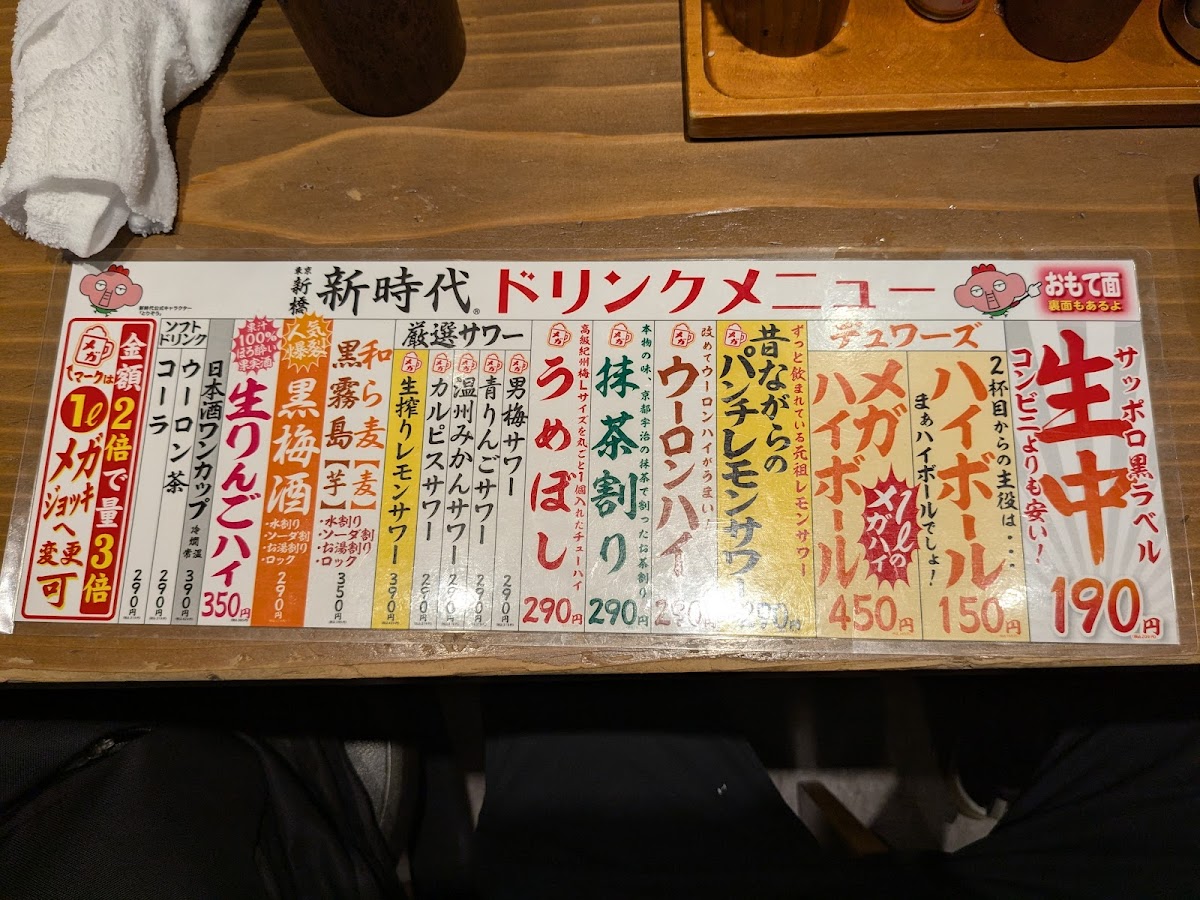 東京
新橋
新時代®
ドリンクメニュー
おもて面
裏面もあるよ
新時代公式キャラクター
「とりぞう」
サッポロ黒ラベル
生中
コンビニよりも安い!
190円
チュワーズ
2杯目からの主役は・・・
ハイボール
まぁハイボールでしょ!
150円
メガ
ハイボール
1ℓの
メガハイ
450円
ずっと飲まれている元祖レモンサワー
昔ながらの
パンチレモンサワー
メガ
290円
改めてウーロンハイがうまい
メガ
ウーロンハイ
290円
本物の味、京都宇治の抹茶で割ったお茶割り
メガ
抹茶割り
290円
高級紀州梅Lサイズを丸ごと1個入れたチューハイ
メガ
うめぼし
290円
厳選サワー
メガ
男梅サワー
290円
メガ
青りんごサワー
290円
メガ
温州みかんサワー
290円
メガ
カルピスサワー
290円
メガ
生搾りレモンサワー
390円
和ら麦【麦】
黒霧島【芋】
・水割り
・ソーダ割
・お湯割り
・ロック
350円
人気
爆裂
黒梅酒
・水割り
・ソーダ割
・お湯割り
・ロック
290円
果汁
100%
ほろ酔い
果実酒
生りんごハイ
350円
日本酒ワンカップ
冷 燗 常温
390円
ソフト
ドリンク
ウーロン茶
290円
コーラ
290円
金額2倍で量3倍
メガ
マークは
1ℓ
メガ
ジョッキ
へ
変更
可